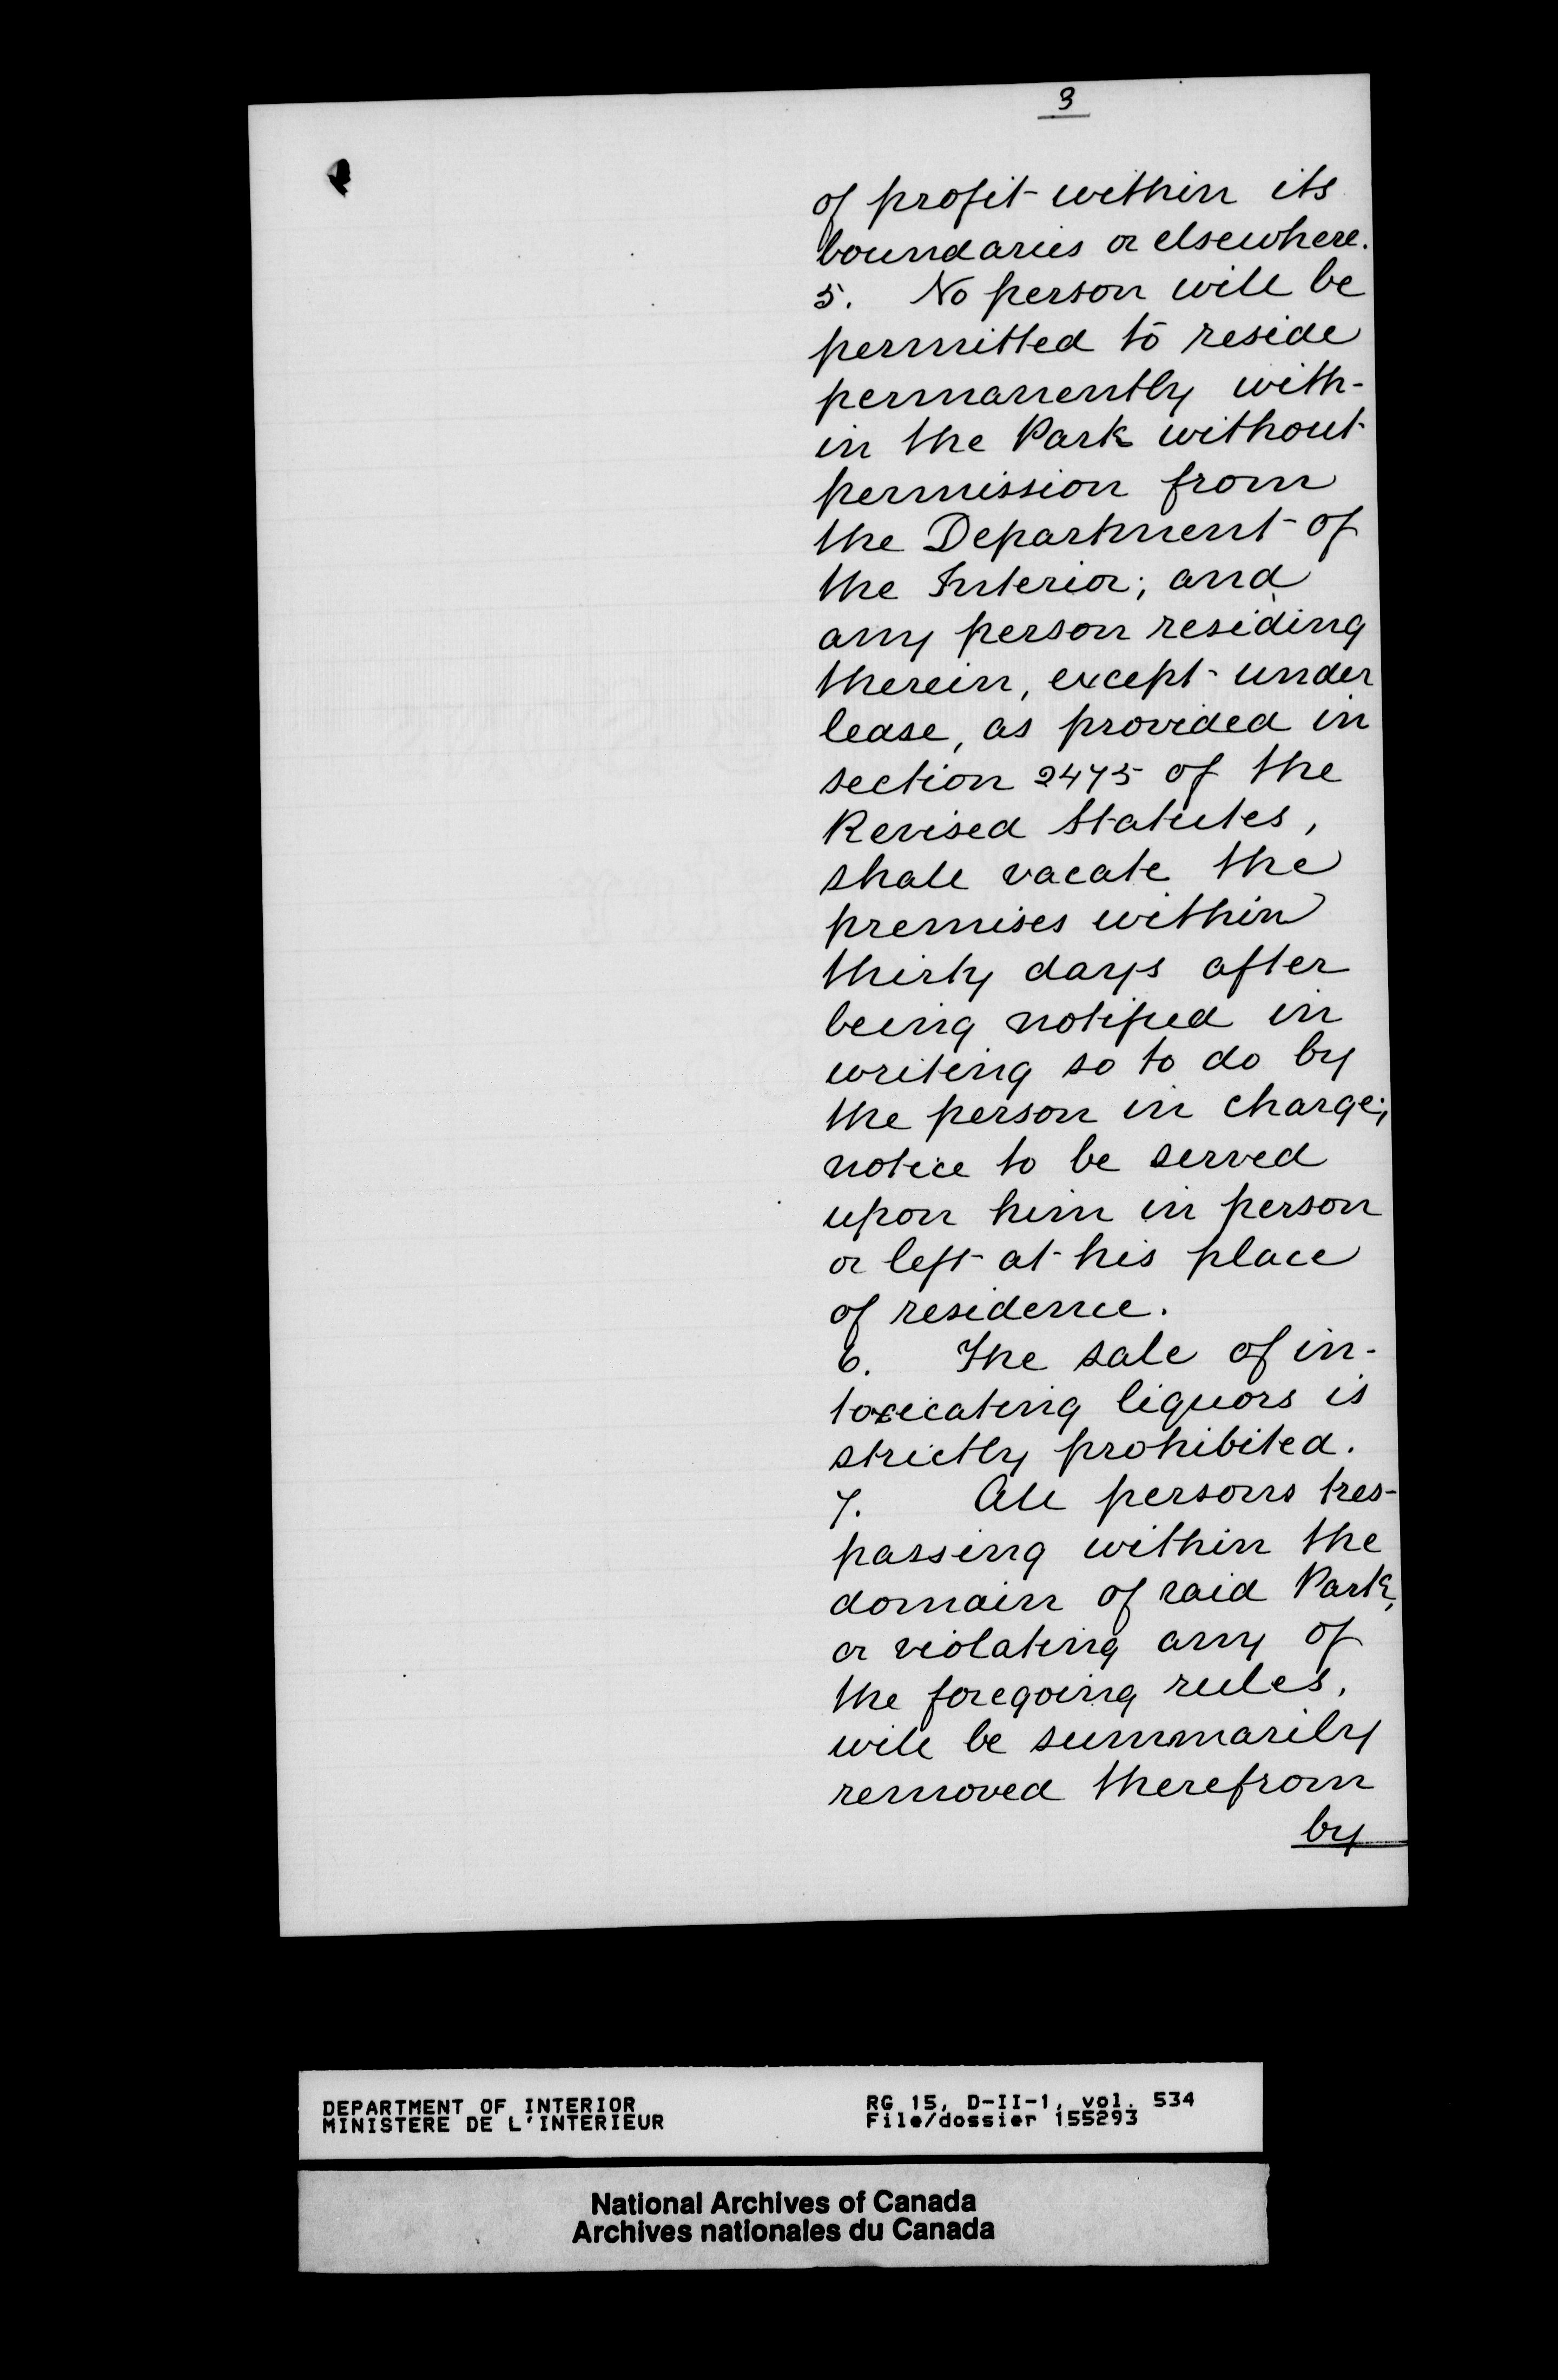 3
of profit within its
boundaries or elsewhere.
5. No person will be
permitted to reside
permanently with-
in the Park without
permission from
the Department of
the Interior; and
any person residing
therein, except under
lease, as provided in
section 2475 of the
Revised Statutes,
shall vacate the
premises within
thirty days after
being notified in
writing so to do by
the person in charge;
notice to be served
upon him in person
or left at his place
of residence.
6. The sale of in-
toxicating liquors is
strictly prohibited.
7. All persons tres-
passing within the
domain of said Park,
or violating any of
the foregoing rules,
will be summarily
removed therefrom
by
DEPARTMENT OF INTERIOR RG 15, D-II-1, vol. 534
MINISTERE DE L'INTERIEUR File/dossier 155293
National Archives of Canada
Archives nationales du Canada